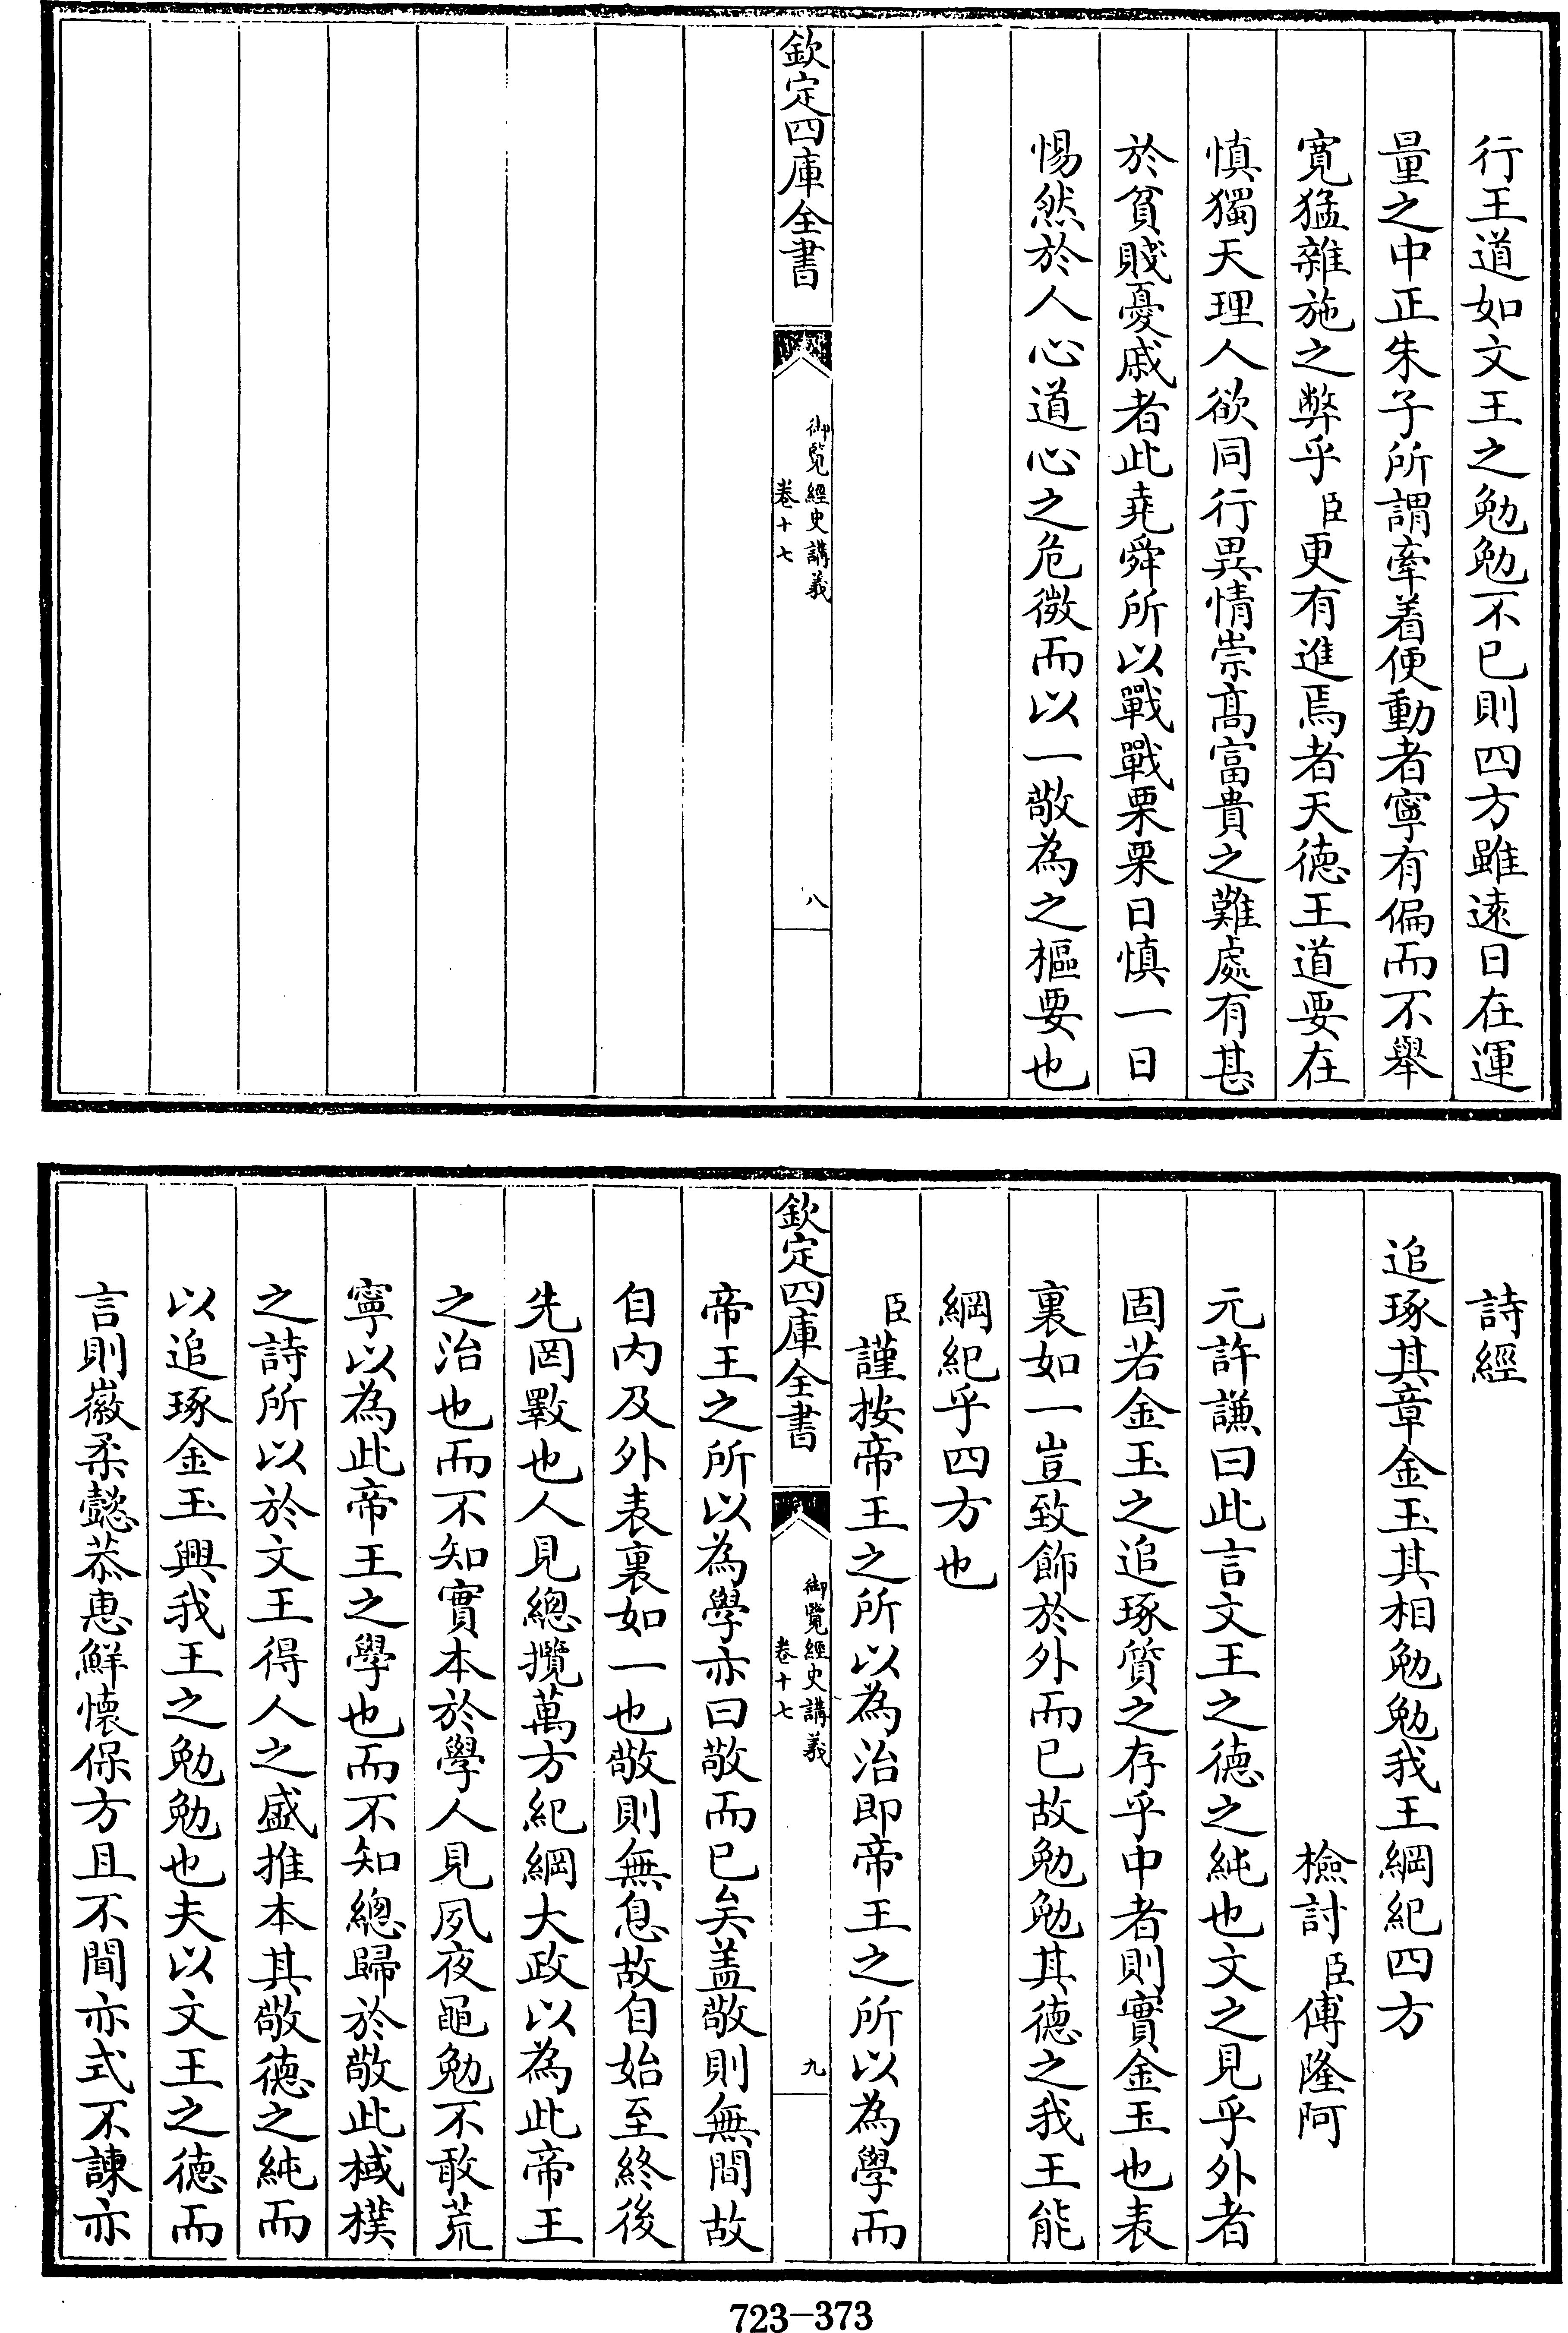 行王道如文王之勉勉不已則四方雖遠日在運
量之中正朱子所謂牽着便動者寧有偏而不舉
寛猛雜施之弊乎臣更有進焉者天德王道要在
慎獨天理人欲同行異情崇髙富貴之難處有甚
於貧賤憂戚者此堯舜所以戰戰栗栗日慎一日
惕然於人心道心之危微而以一敬為之樞要也
欽定四庫全書
御覽經史講義
卷十七
八
詩經
追琢其章金玉其相勉勉我王綱紀四方
檢討臣傅隆阿
元許謙曰此言文王之德之純也文之見乎外者
固若金玉之追琢質之存乎中者則實金玉也表
裏如一豈致飾於外而已故勉勉其德之我王能
綱紀乎四方也
臣謹按帝王之所以為治即帝王之所以為學而
帝王之所以為學亦曰敬而已矣盖敬則無間故
欽定四庫全書
御覽經史講義
卷十七
九
自内及外表裏如一也敬則無息故自始至終後
先罔斁也人見總攬萬方紀綱大政以為此帝王
之治也而不知實本於學人見夙夜黽勉不敢荒
寧以為此帝王之學也而不知總歸於敬此棫樸
之詩所以於文王得人之盛推本其敬德之純而
以追琢金玉興我王之勉勉也夫以文王之德而
言則徽柔懿恭惠鮮懷保方且不聞亦式不諫亦
723-373